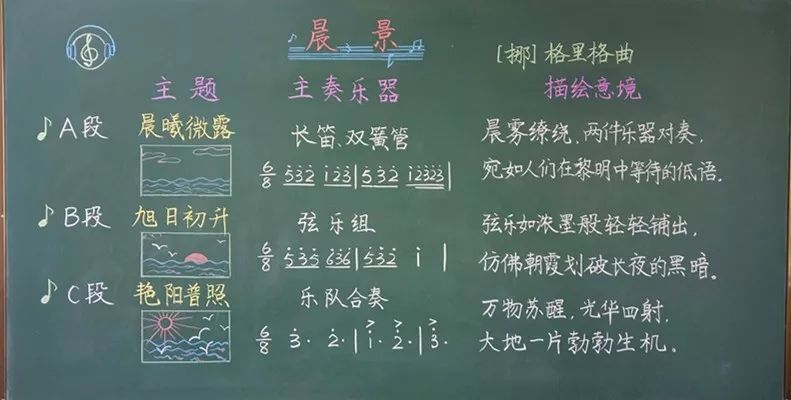 晨 景
[挪]格里格曲
主题 主奏乐器 描绘意境
A段 晨曦微露 长笛、双簧管 晨雾缭绕,两件乐器对奏,
6/8 532 123 | 532 12323 | 宛如人们在黎明中等待的低语。
B段 旭日初升 弦乐组 弦乐如浓墨般轻轻铺出,
6/8 535 636 | 532 1 | 仿佛朝霞划破长夜的黑暗。
C段 艳阳普照 乐队合奏 万物苏醒,光华四射,
6/8 3· 2· | 1· 2· | 3· 大地一片勃勃生机。